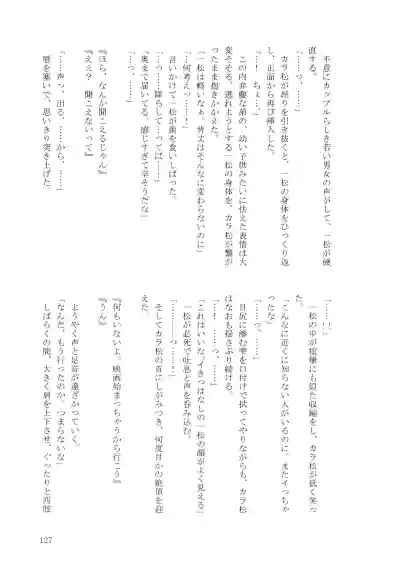 不意にカップルらしき若い男女の声がして、一松が硬
直する。
「……っ、……」
カラ松が昂りを引き抜くと、一松の身体をひっくり返
し、正面から再び挿入した。
「……！ ちょ、……」
この内弁慶な弟の、幼い子供みたいに怯えた表情は大
変そそる。逃れようとする一松の身体を、カラ松が繋が
ったまま抱きかかえた。
「一松は軽いなぁ。背丈はそんなに変わらないのに」
「…何考えっ……！」
言いかけて一松が歯を食いしばった。
「…っ……降ろして…ってば……」
「奥まで届いてる。感じすぎて辛そうだな」
「…っ、……」
『ほら、なんか聞こえるじゃん』
『ええ？ 聞こえないって』
「……声っ、出る、……から、……」
唇を塞いで、思いきり突き上げた。
「……！」
一松の中が痙攣にも似た収縮をし、カラ松が低く笑っ
た。
「こんなに近くに知らない人がいるのに、またイっちゃ
ったな」
「……っ、……」
目尻に滲む雫を口付けで拭ってやりながらも、カラ松
はなおも揺さぶり続ける。
「…！ ……っ、……！」
「これはいいな。イきっぱなしの一松の顔がよく見える」
一松が必死で吐息と声を呑み込む。
「……っ……！」
そしてカラ松の首にしがみつき、何度目かの絶頂を迎
えた。
『何もいないよ。映画始まっちゃうから行こう』
『うん』
ようやく声と足音が遠ざかっていく。
「なんだ、もう行ったのか。つまらないな」
しばらくの間、大きく肩を上下させ、ぐったりと四肢
127